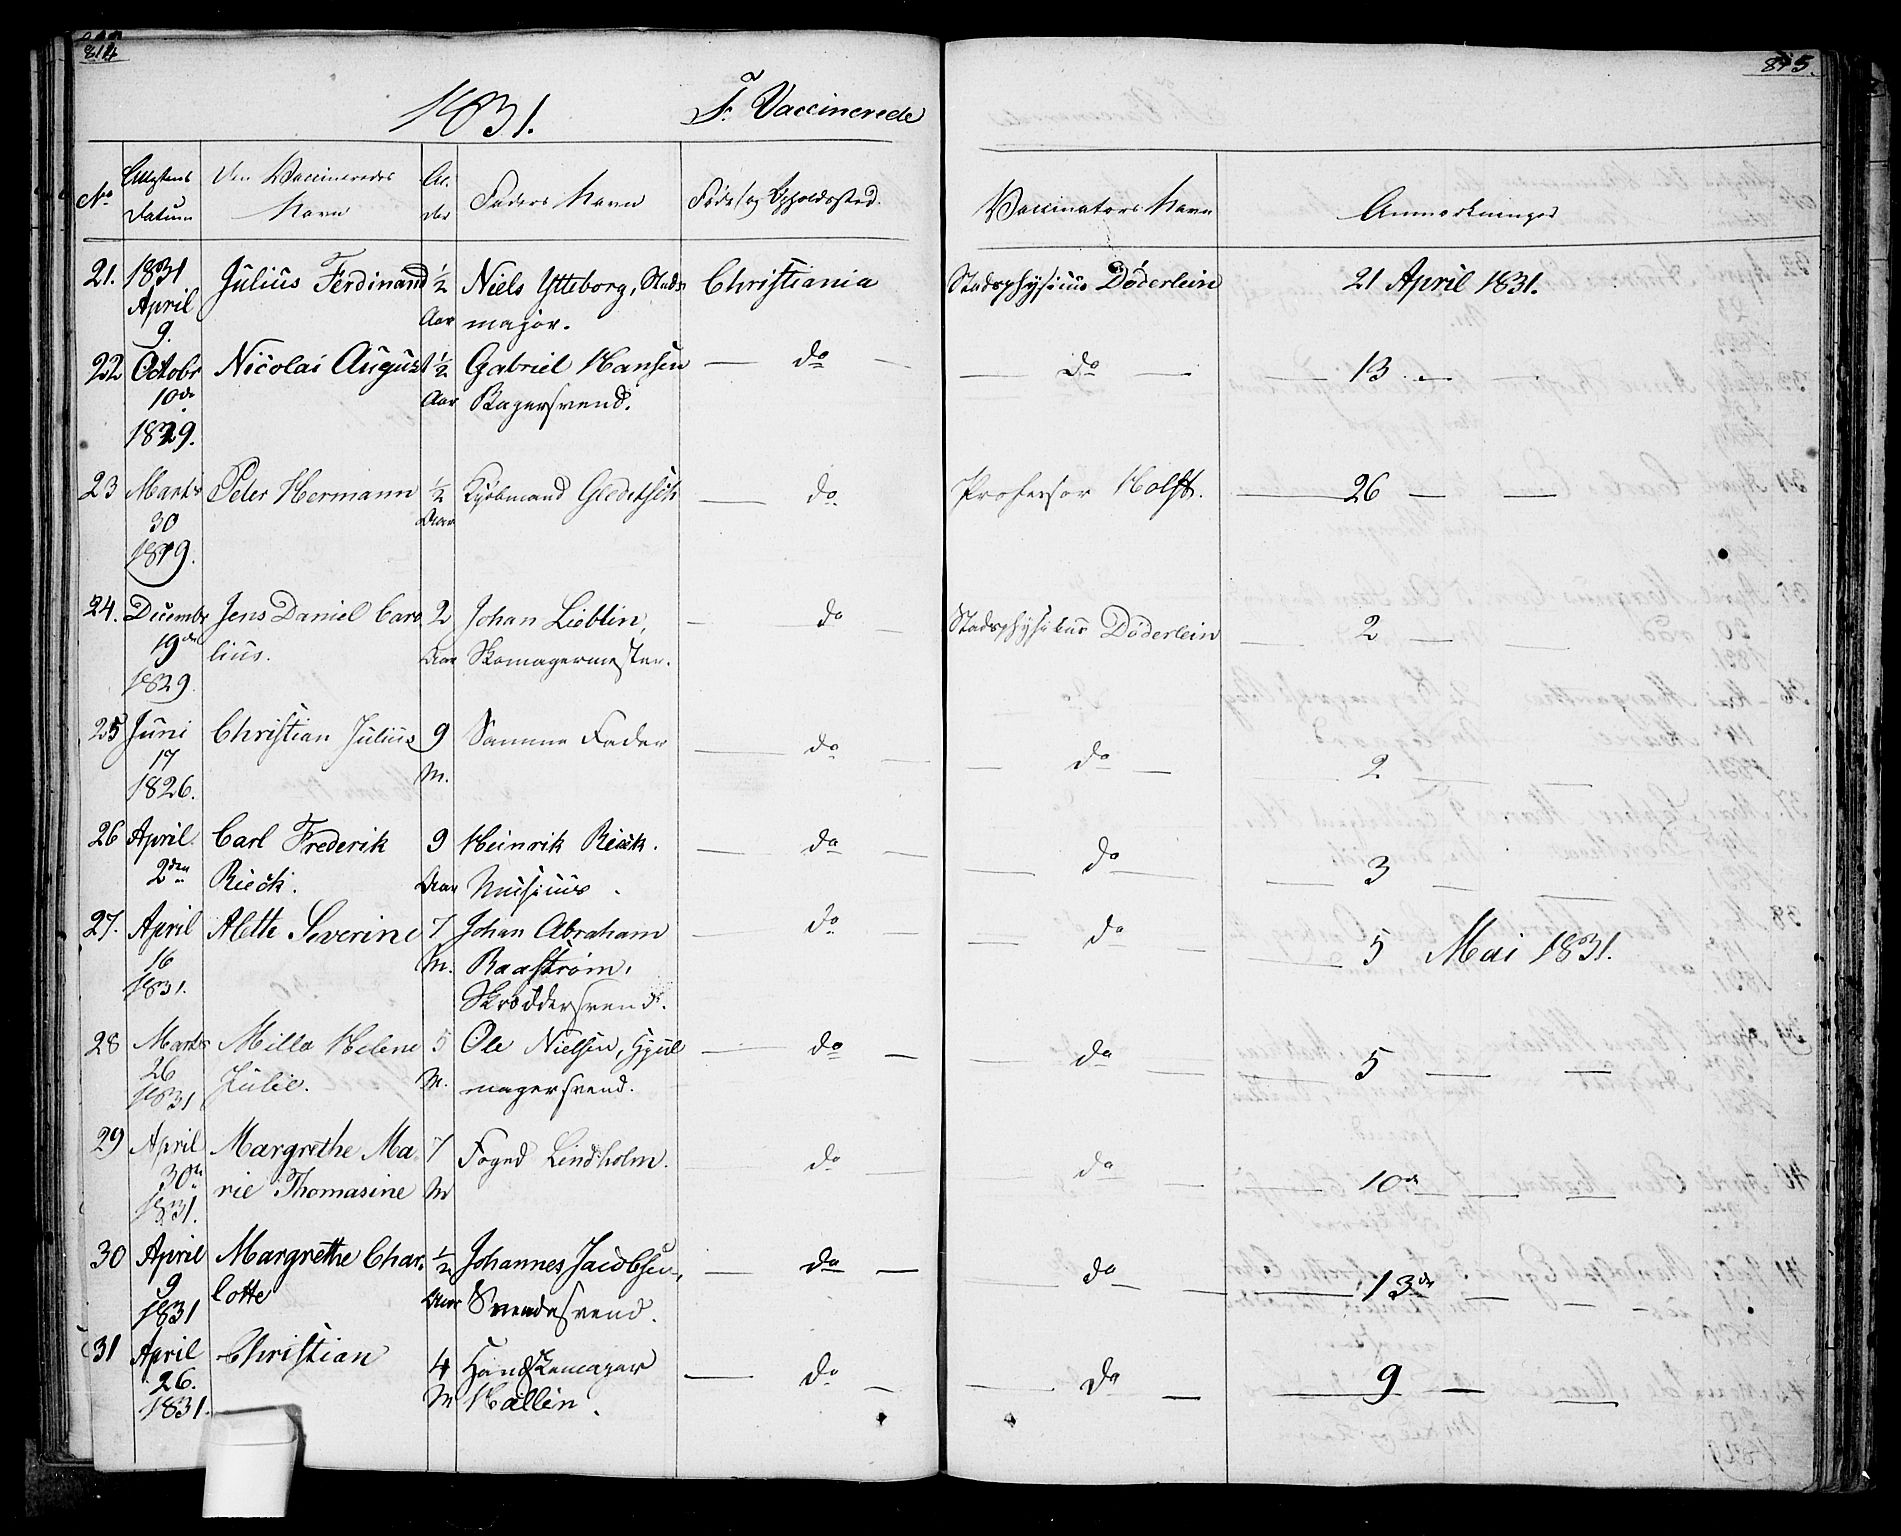 814
815.
1831.
F. Vaccinerede
No
Attestens Datum
Den Vaccineredes Navn
Alder
Faders Navn
Føde/og Opholdssted.
Vaccinators Navn
Anmærkninger
21. 1831 April 9. Julius Ferdinand ½ Aar Niels Ytteborg, Stads Christiania Stadsphysicus Döderlein 21 April 1831.
major.
22 Octobr 10de 1829. Nicolai August 1½ Aar Gabriel Hansen — do — — do — — 13. — —
Bagersvend.
23 Marts 30 1819. Peter Hermann ½ Aar Kjøbmand Gleditsch — do Professor Holst. — 26 — —
24. Decembr 19de 1829 Jens Daniel Caro 2 Aar Johan Lieblin, - do Stadsphysikus Döderlein — 2 — —
lius. Skomagermester.
25 Juni 17 1826. Christian Julius 9 M. Samme Fader — do — — do — — 2 — —
26 April 2den Carl Frederik 9 Aar Heinrik Rieck. — do — — do — — 3 — —
Rieck. Musicus.
27. April 16 1831. Alette Severine 7 M. Johan Abraham — do — do — — 5 Mai 1831.
Raastrøm,
Skrøddersvend.
28 Marts 26 1831 Milla Helene 5 M. Ole Nielsen, Hjul — do — — do — — 5 — —
Julie. magersvend.
29 April 30te 1831. Margrethe Ma 7 M Foged Lindholm. — do — do — — 10de — —
rie Thomasine
30 April 9 1831 Margrethe Char ½ Aar Johannes Jacobsen, — do — do — — 13de — — —
lotte
31 April 26. 1831. Christian 4 M Handskemager — do — — do — — 9 — —
Hallén.